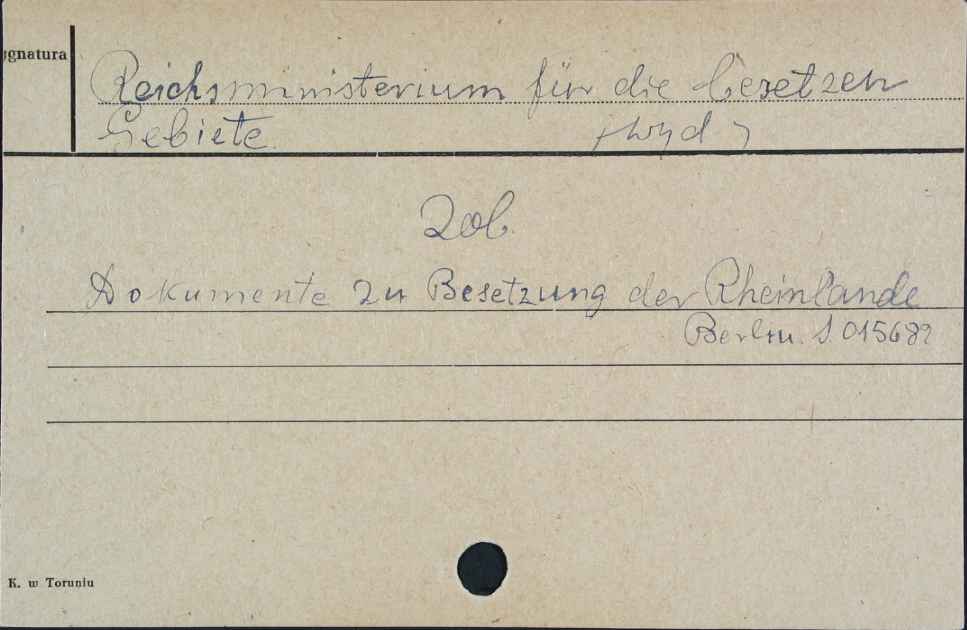 ygnatura
Reichsministerium für die besetzen
Gebiete (wyd)
Zob.
Dokumente zu Besetzung der Rheinlande
Berlin. S. 015682
K. w Toruniu